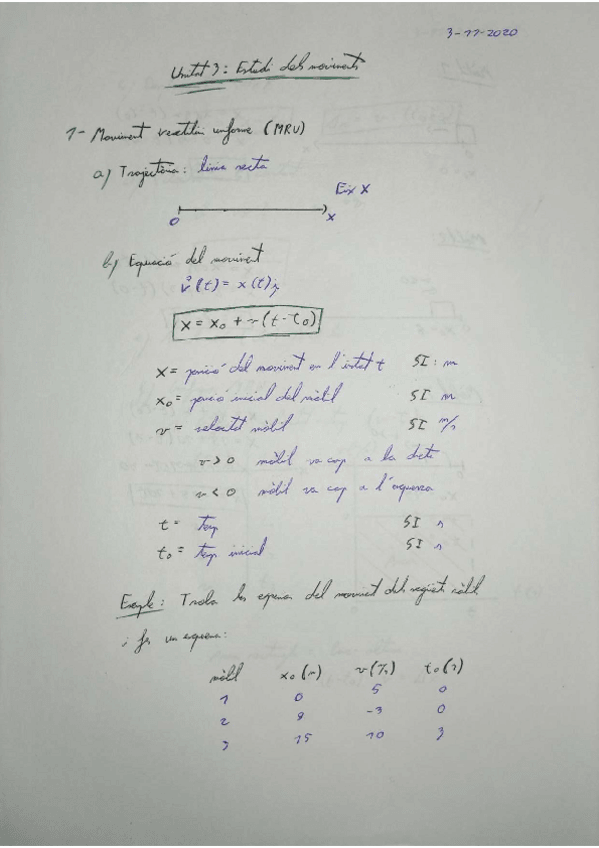 3-11-2020
Unitat 3: Estudi dels moviments
1- Moviment rectilini uniforme (MRU)
a) Trajectòria: línia recta
Eix X
0 x
b) Equació del moviment
r(t) = x(t)i
x = x0 + v(t - t0)
x = posició del moviment en l'instat t SI: m
x0 = posició inicial del mòbil SI m
v = velocitat mòbil SI m/s
v > 0 mòbil va cap a la dreta
v < 0 mòbil va cap a l'esquerra
t = temp SI s
t0 = temp inicial SI s
Exemple: Troba les equacions del moviment dels següents mòbils
i fes un esquema:
mòbil x0 (m) v (m/s) t0 (s)
1 0 5 0
2 9 -3 0
3 15 10 3